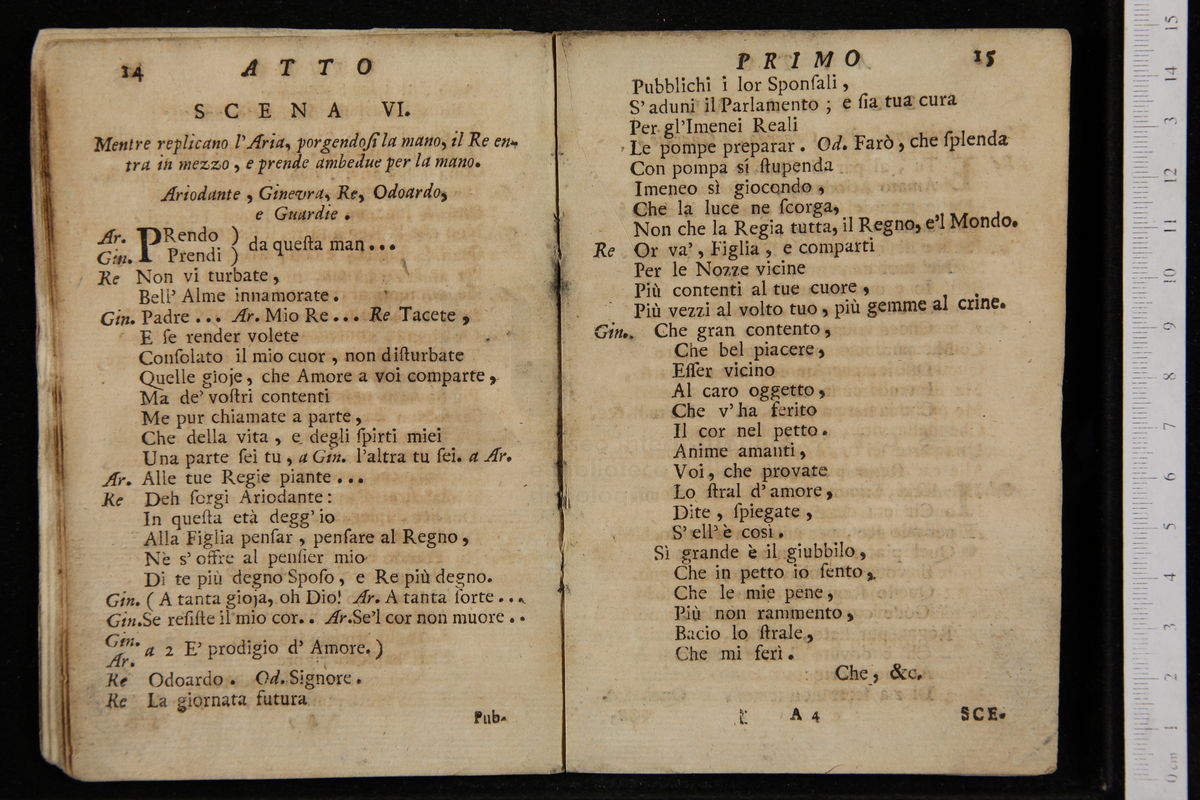 14 ATTO
SCENA VI.
Mentre replicano l'Aria, porgendoſi la mano, il Re en-
tra in mezzo, e prende ambedue per la mano.
Ariodante, Ginevra, Re, Odoardo,
e Guardie.
Ar. PRendo )
Gin. Prendi ) da queſta man...
Re Non vi turbate,
Bell' Alme innamorate.
Gin. Padre... Ar. Mio Re... Re Tacete,
E ſe render volete
Conſolato il mio cuor, non diſturbate
Quelle gioje, che Amore a voi comparte,
Ma de' voſtri contenti
Me pur chiamate a parte,
Che della vita, e degli ſpirti miei
Una parte ſei tu, a Gin. l'altra tu ſei. a Ar.
Ar. Alle tue Regie piante...
Re Deh ſorgi Ariodante:
In queſta età degg' io
Alla Figlia penſar, penſare al Regno,
Nè s' offre al penſier mio
Di te più degno Spoſo, e Re più degno.
Gin. ( A tanta gioja, oh Dio! Ar. A tanta ſorte...
Gin. Se reſiſte il mio cor.. Ar. Se'l cor non muore..
Gin.
Ar. a 2 E' prodigio d' Amore.)
Re Odoardo. Od. Signore.
Re La giornata futura
Pub-
PRIMO 15
Pubblichi i lor Sponſali,
S' aduni il Parlamento; e ſia tua cura
Per gl'Imenei Reali
Le pompe preparar. Od. Farò, che ſplenda
Con pompa sì ſtupenda
Imeneo sì giocondo,
Che la luce ne ſcorga,
Non che la Regia tutta, il Regno, e'l Mondo.
Re Or va', Figlia, e comparti
Per le Nozze vicine
Più contenti al tue cuore,
Più vezzi al volto tuo, più gemme al crine.
Gin. Che gran contento,
Che bel piacere,
Eſſer vicino
Al caro oggetto,
Che v' ha ferito
Il cor nel petto.
Anime amanti,
Voi, che provate
Lo ſtral d' amore,
Dite, ſpiegate,
S' ell' è così.
Sì grande è il giubbilo,
Che in petto io ſento,
Che le mie pene,
Più non rammento,
Bacio lo ſtrale,
Che mi ferì.
Che, &c.
A 4 SCE-
0 cm 1 2 3 4 5 6 7 8 9 10 11 12 3 14 15